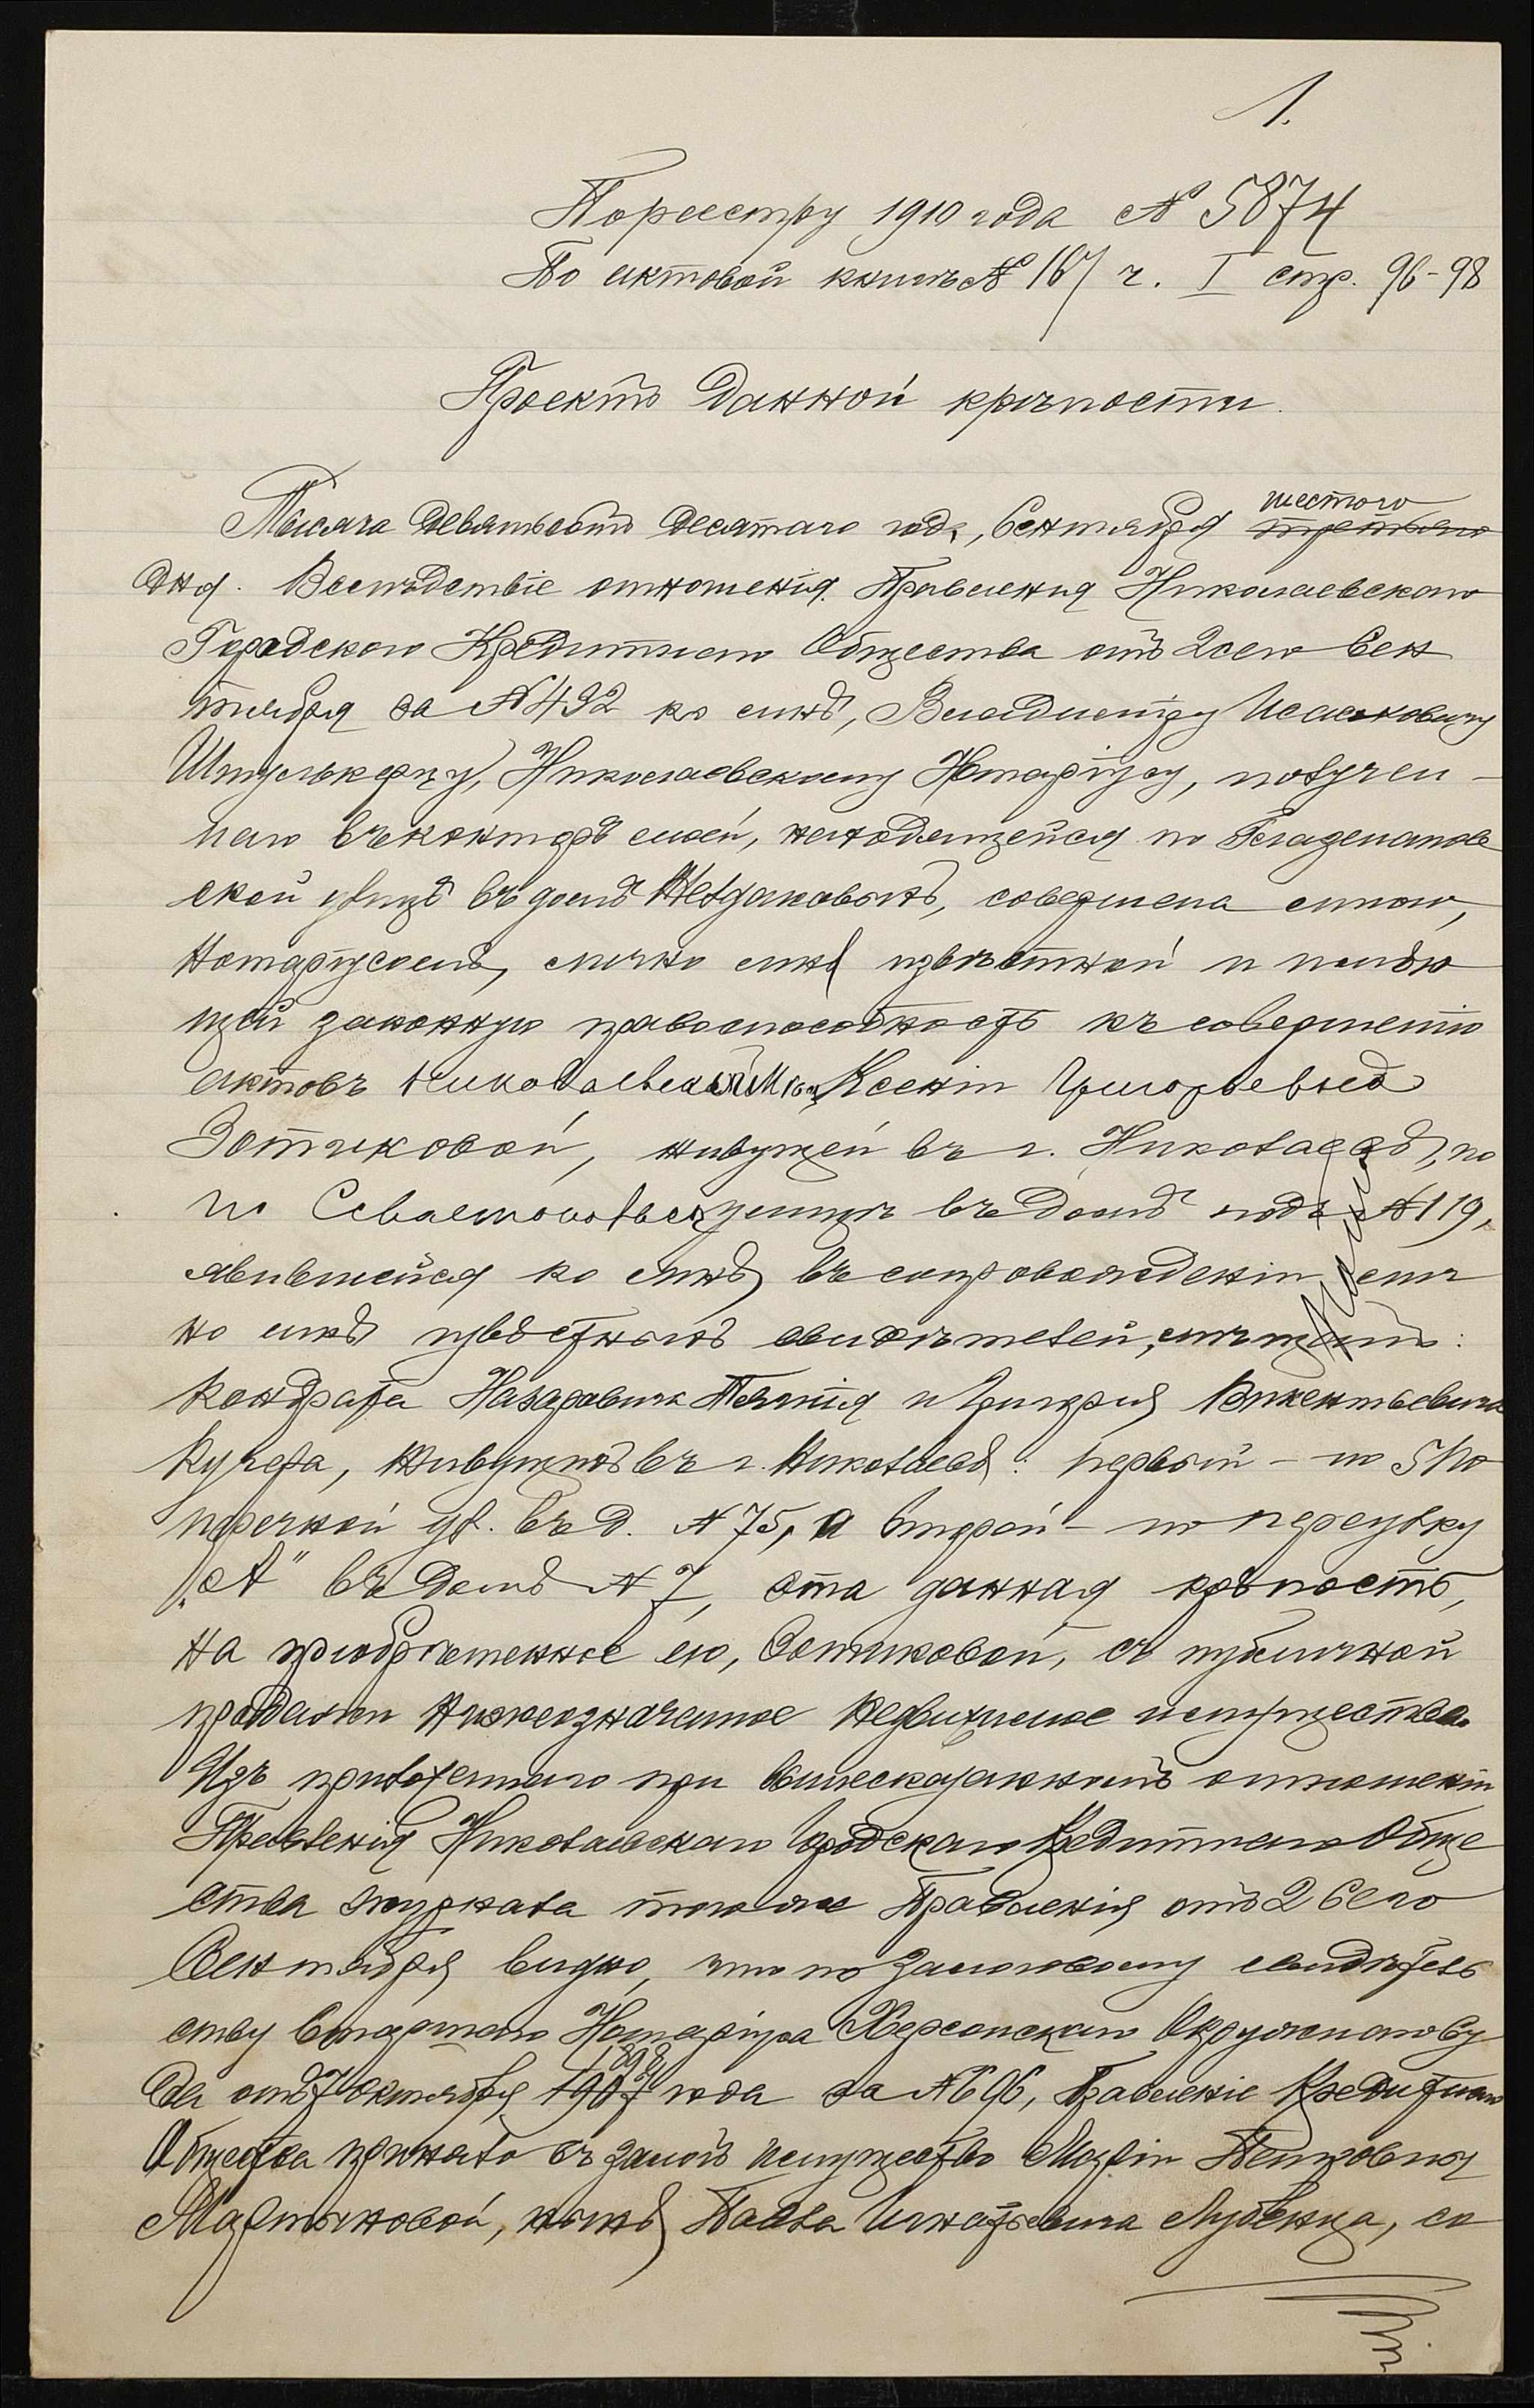 1.
По реестру 1910 года № 5874
По актовой книгѣ № 167 ч. I стр. 96-98
Проектъ Данной крѣпости.
Тысяча девятьсотъ десятаго года, Сентября шестого третьяго
дня. Вслѣдствіе отношенія Правленія Николаевскаго
Городского Кредитнаго Общества отъ 2сего Сен
тября за № 492 ко мнѣ, Владиміру Исааковичу
Штулькерцу, Николаевскому Нотаріусу, получен-
наго въ конторѣ моей, находящейся по Глазенапов
ской улицѣ въ домѣ совершена мною,
Нотаріусомъ, лично мнѣ извѣстной и имѣю
щей законную правоспособность къ совершенію
актовъ Николаевской Ксеніи Григорьевнѣ
Зотиковой, живущей въ г. Николаевѣ, по
по Севастопольск улицѣ въ домѣ подъ № 119,
явившейся ко мнѣ въ сопровожденіи лич
но мнѣ извѣстныхъ свидѣтелей, мѣщанъ:
Кондрата Назаровича и Викентьевича
Кучера, живущихъ въ г. Николаевѣ: первый - по 5 По
перечной ул. въ д. № 75, а второй - по переулку
„А" въ домѣ № 7, эта данная крѣпость,
на пріобрѣтенное ею, Зотиковой, съ публичной
продажи нижеозначенное недвижимое имущество.
Изъ приложеннаго при вышесказанномъ отношеніи
Правленія Николаевскаго Городского Кредитнаго Обще
ства журнала того же Правленія отъ 2 сего
Сентября видно, что по залоговому свидѣтель
ству Старшаго Нотаріуса Херсонскаго Окружнаго Су
да отъ 7 Октября 1898 1907 года за № 696, Правленіе Кредитнаго
Общества приняло въ залогъ имущество Маріи Петровны
Мартыновой, нынѣ Павла Игнатьевича Лубенца, со